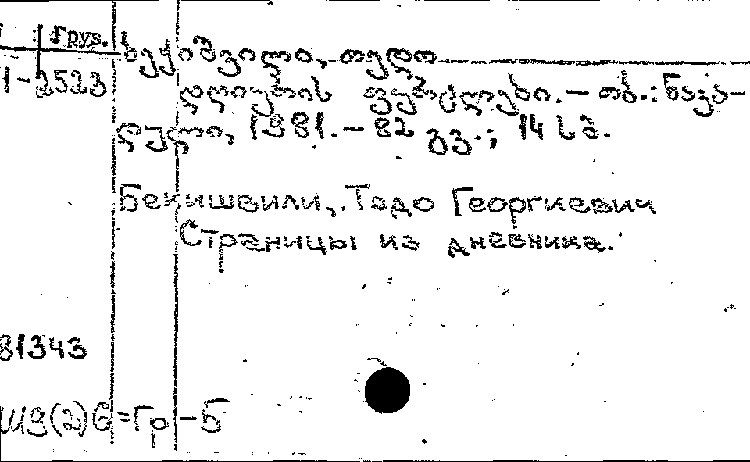 Груз.
ბექიშვილი, თედო
1-2523
დღიურის ფურცლები. — თბ.: ნაკა-
დული, 1981. — 82 გვ.; 14 სმ.
Бекишвили, Тедо Георгиевич
Страницы из дневника.
81343
Ш9(2)6=Гр - Б